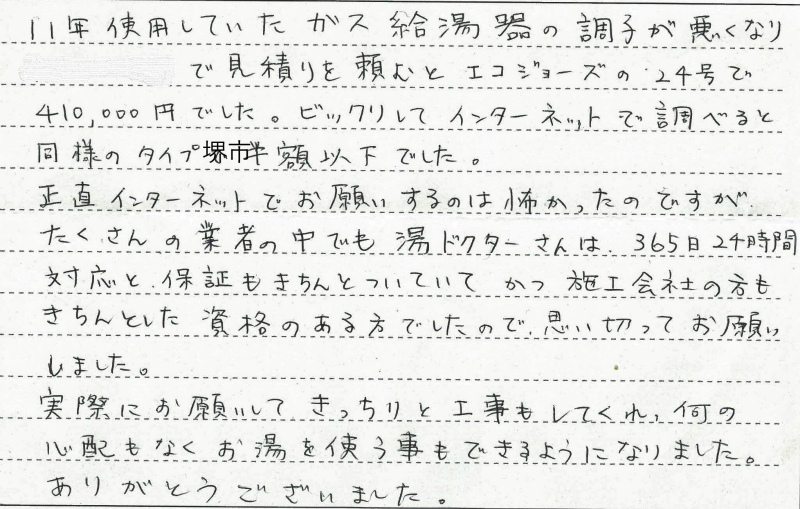 11年使用していたガス給湯器の調子が悪くなり
で見積りを頼むとエコジョーズの24号で
410,000円でした。ビックリしてインターネットで調べると
同様のタイプ堺市半額以下でした。
正直インターネットでお願いするのは怖かったのですが
たくさんの業者の中でも湯ドクターさんは、365日24時間
対応と、保証もきちんとついていてかつ施工会社の方も
きちんとした資格のある方でしたので、思い切ってお願い
しました。
実際にお願いしてきっちりと工事もしてくれ、何の
心配もなくお湯を使う事もできるようになりました。
ありがとうございました。